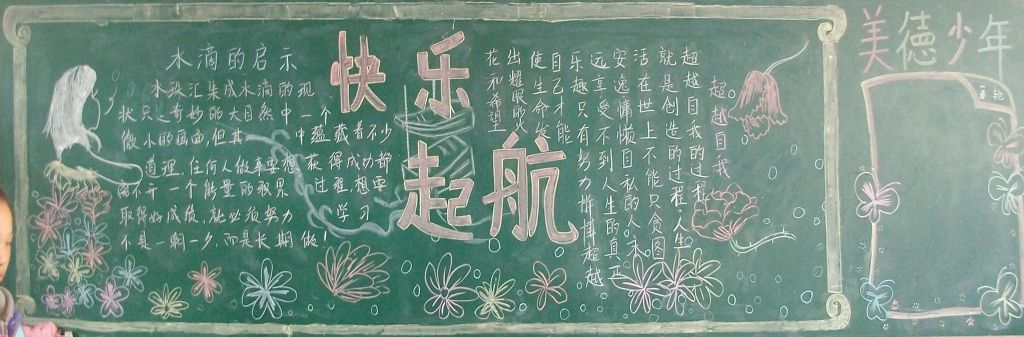 美德少年
快乐
起航
水滴的启示
水珠汇集成水滴的现
状只是奇妙的大自然中一个
微小的画面,但其中蕴藏着不少
道理,任何人做事要想获得成功都
离不开一个能量的积累过程,想要
取得好成绩,就必须努力学习
不是一朝一夕,而是长期做!
超越自我
超越自我的过程
就是创造的过程,人生
活在世上不能只贪图
安逸慵懒自私的人永
远享受不到人生的真正
乐趣只有努力拼搏超越
自己才能
使生命发
出耀眼的火
花和希望